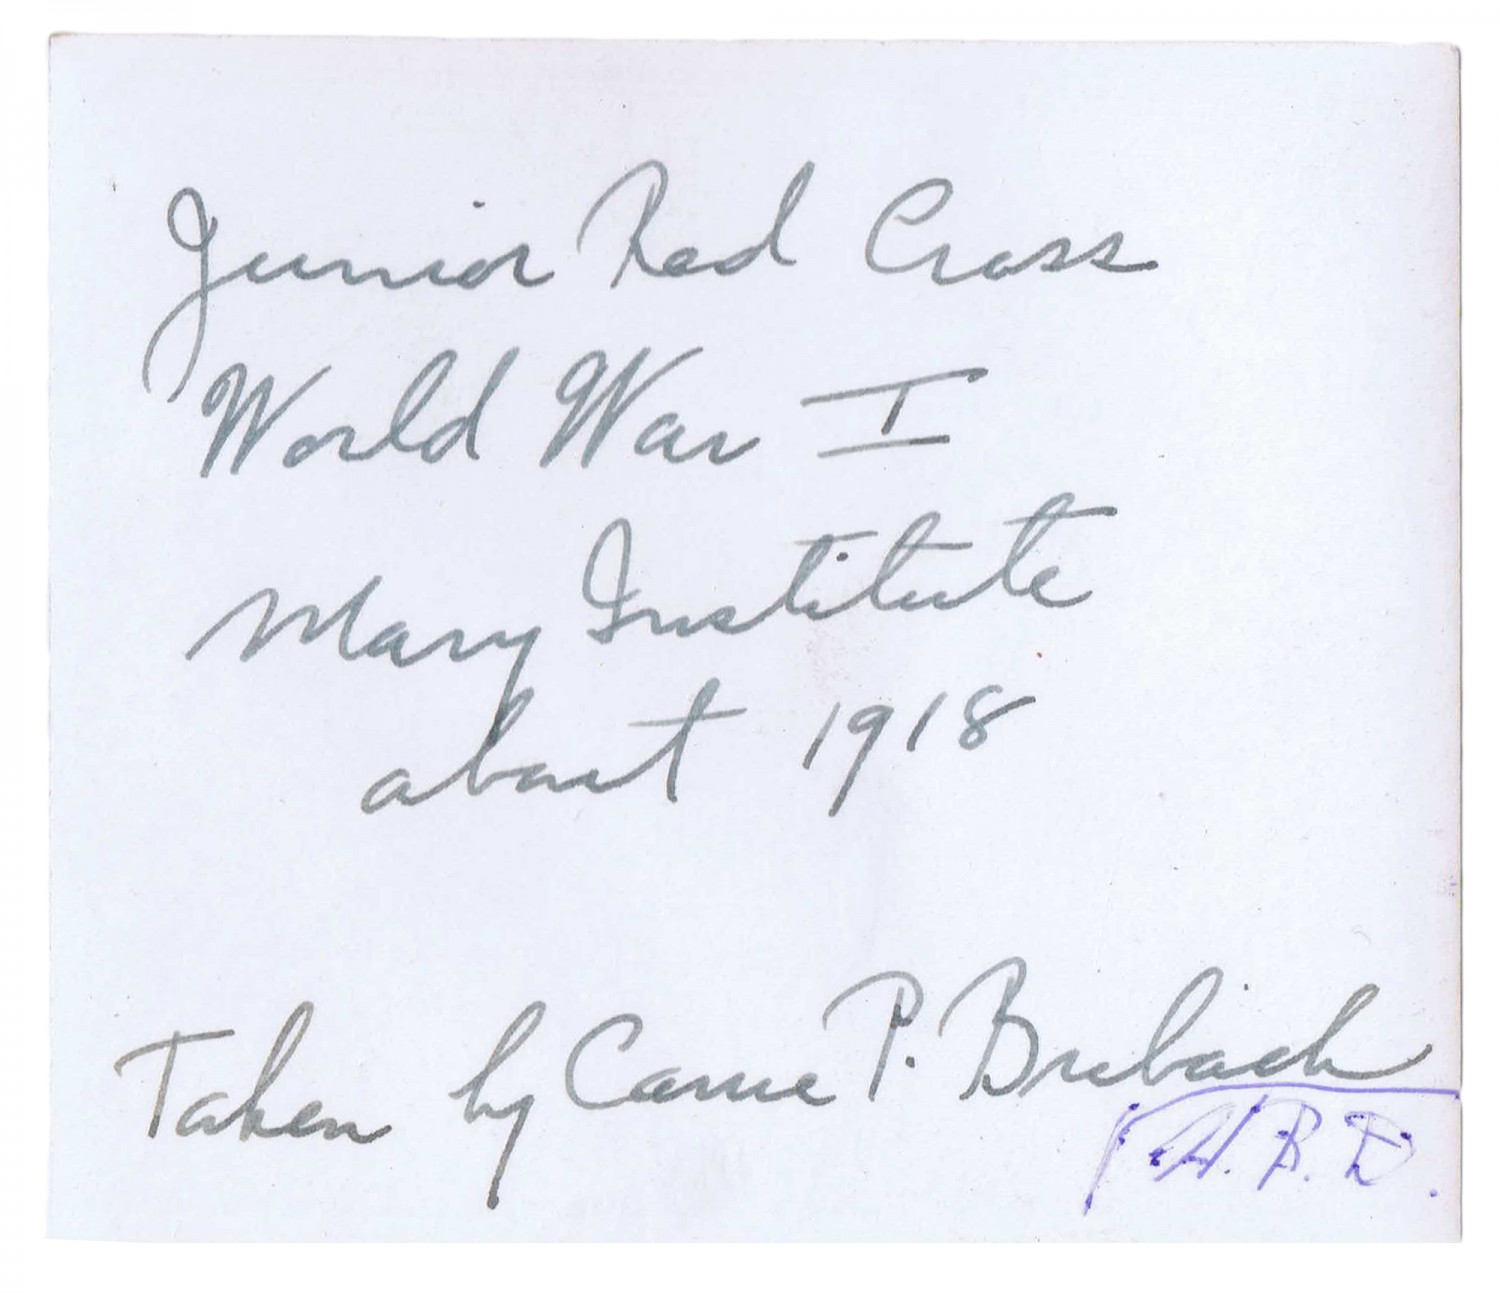 Junior Red Cross
World War I
Mary Institute
about 1918
Taken by Carrie P. Brubach
H. B. D.